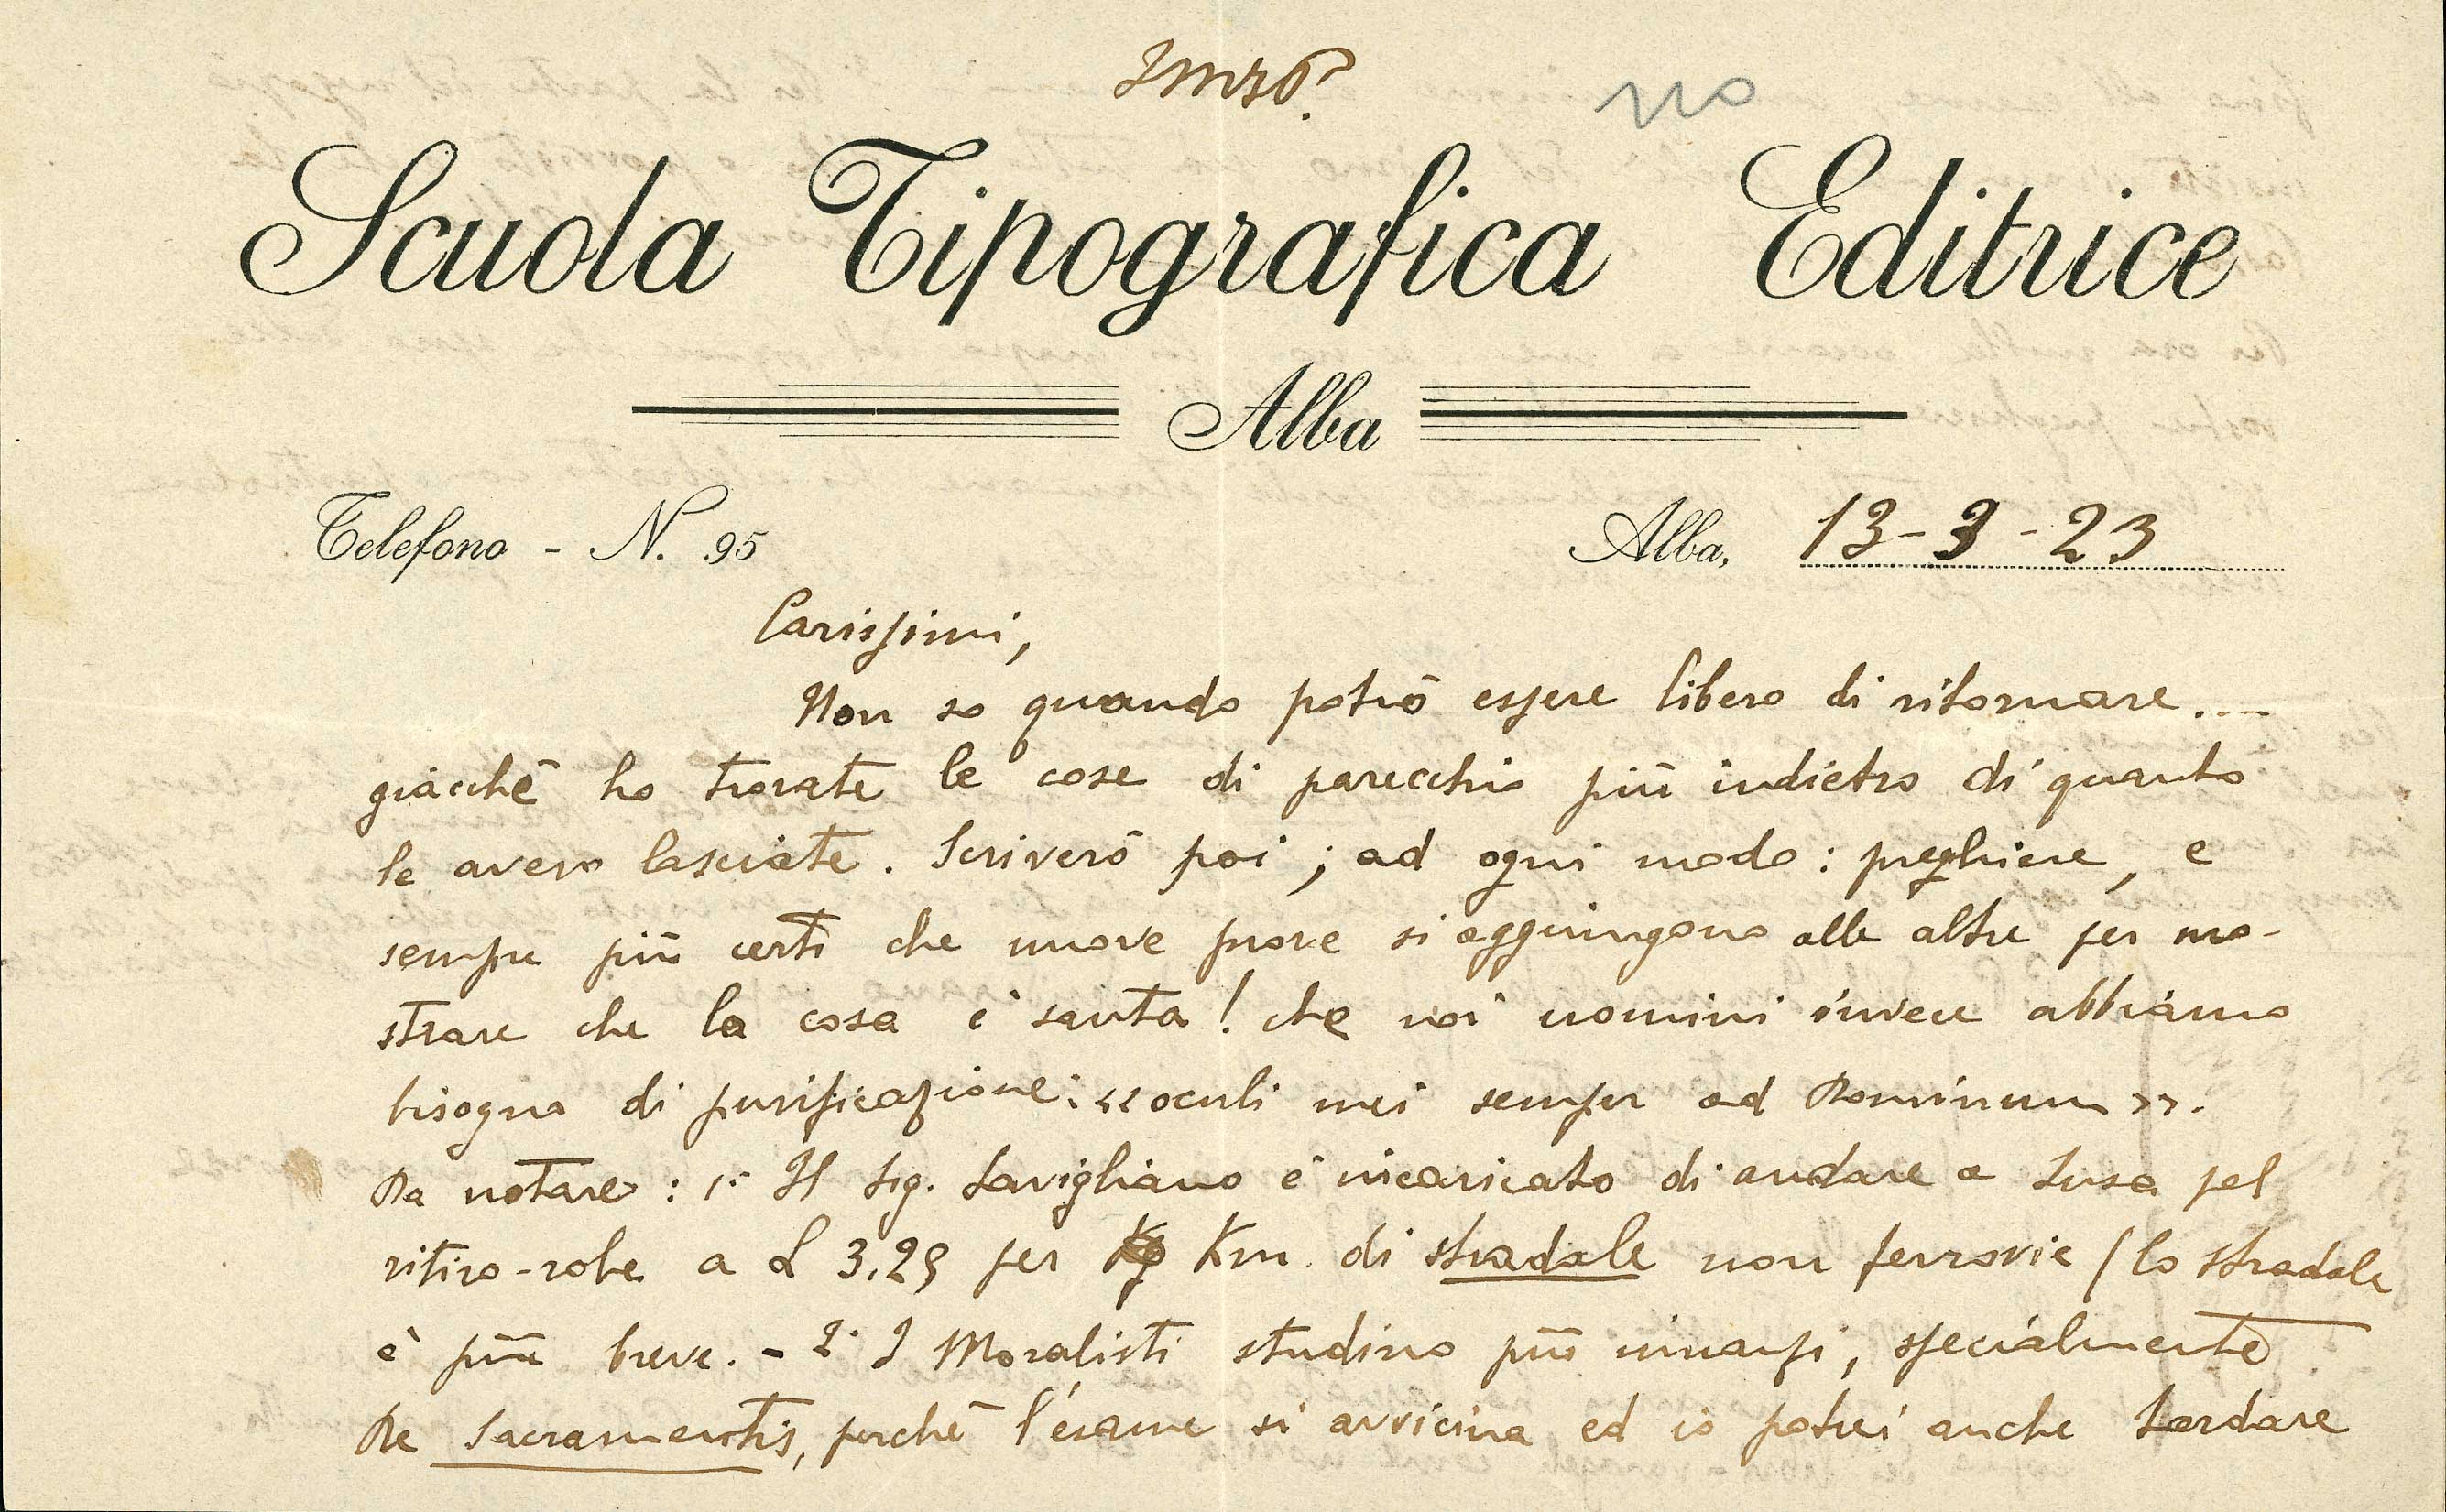 no
Scuola Tipografica Editrice
Alba
Telefono - N. 95
Alba, 13-3-23
Carissimi,
Non so quando potrò essere libero di ritornare....
giacchè ho trovate le cose di parecchio più indietro di quanto
le avevo lasciate. Scriverò poi; ad ogni modo: preghiere, e
sempre più certi che nuove prove si aggiungono alle altre per mo-
strare che la cosa è santa! che noi uomini invece abbiamo
bisogno di purificazione: «oculi mei semper ad Dominum».
Da notare: 1° Il Sig. Savigliano è incaricato di andare a Susa pel
ritiro-robe a L 3,25 per Km. di stradale non ferrovie (lo stradale
è più breve. - 2° I Moralisti studino più innanzi, specialmente
De Sacramentis, perchè l'esame si avvicina ed io potrei anche tardare